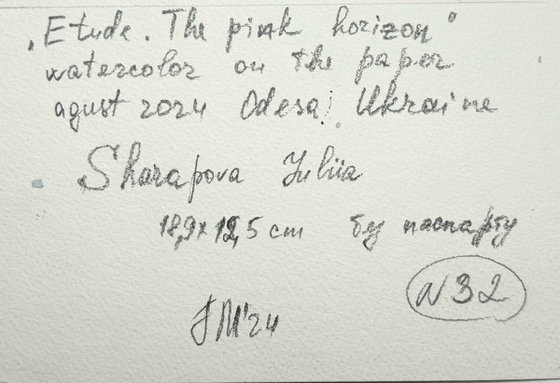 „Etude. The pink horizon"
watercolor on the paper
agust 2024 Odesa, Ukraine
Sharapova Iuliia
18,9x12,5 cm без паспарту
N32
JM'24